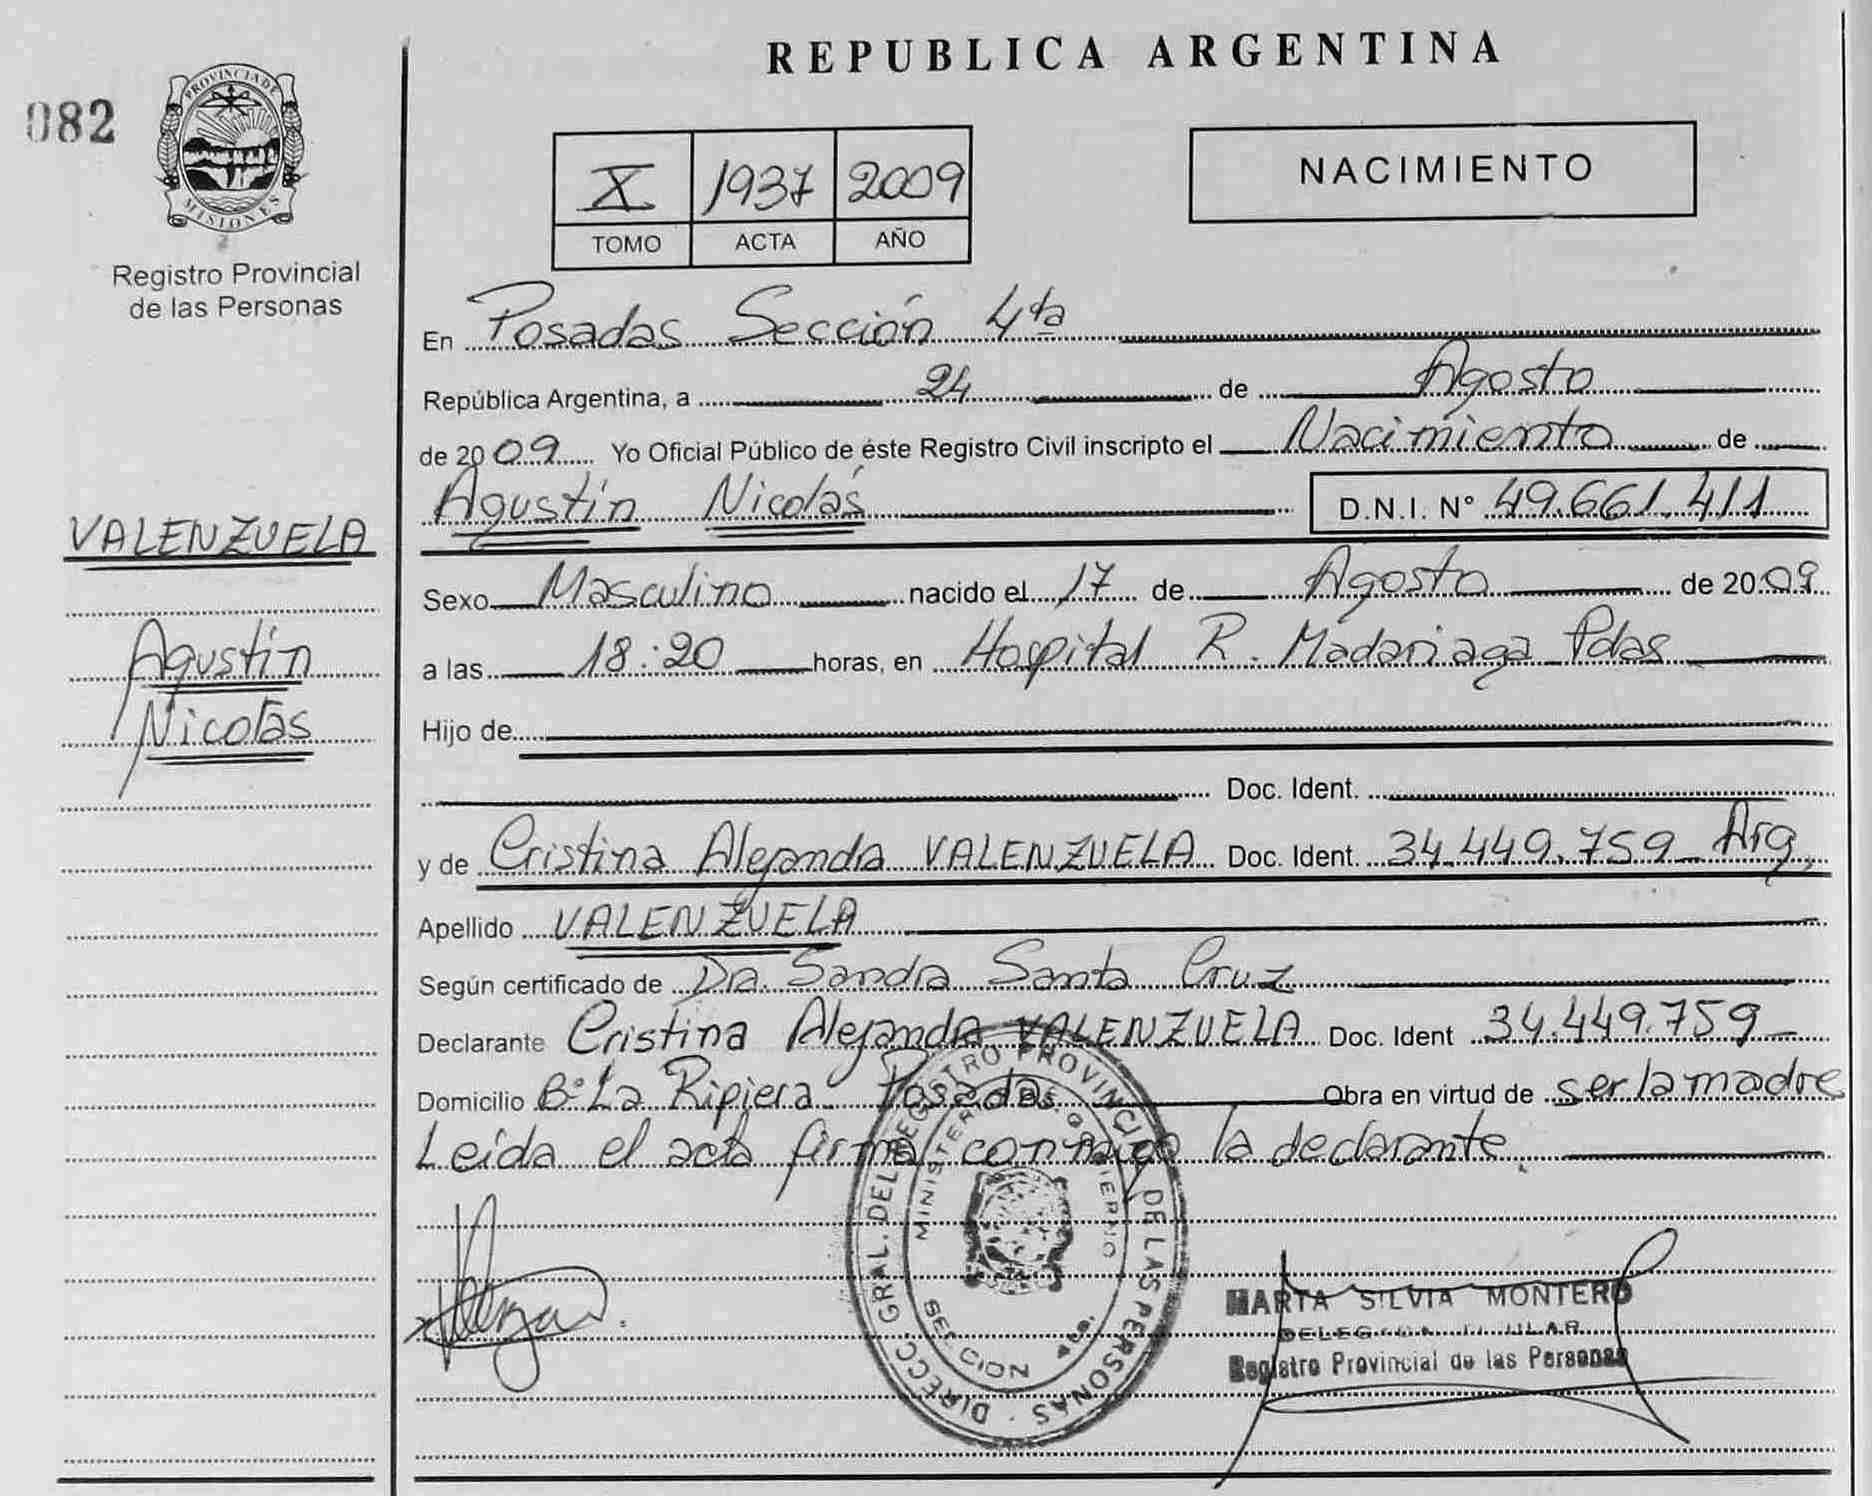 REPUBLICA ARGENTINA
082
PROVINCIA DE
MISIONES
Registro Provincial
de las Personas
X 1937 2009
TOMO ACTA AÑO
NACIMIENTO
En Posadas Sección 4ta
República Argentina, a 24 de Agosto
de 2009 Yo Oficial Público de éste Registro Civil inscripto el Nacimiento de
Agustín Nicolás D.N.I. N° 49.661.411
VALENZUELA
Agustín
Nicolás
Sexo Masculino nacido el 17 de Agosto de 2009
a las 18:20 horas, en Hospital R. Madariaga Pdas
Hijo de
Doc. Ident.
y de Cristina Alejandra VALENZUELA Doc. Ident. 34.449.759 Arg.
Apellido VALENZUELA
Según certificado de Dra. Sandra Santa Cruz
Declarante Cristina Alejandra VALENZUELA Doc. Ident 34.449.759
Domicilio B° La Ripiera Posadas Obra en virtud de ser la madre
Leída el acta firma conmigo la declarante.
DIRECC. GRAL. DEL REGISTRO PROVINCIAL DE LAS PERSONAS
MINISTERIO DE GOBIERNO
SECCION 4ta.
MARTA SILVIA MONTERO
DELEGADA TITULAR
Registro Provincial de las Personas